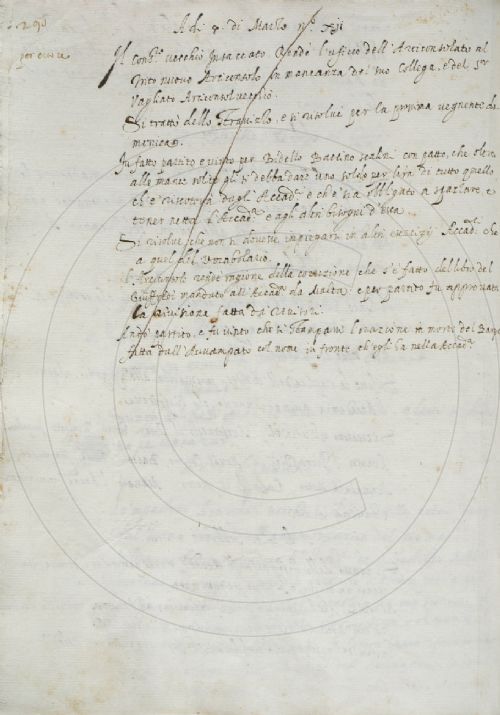 295
A dì 8. di Marzo n.º XII
per errore
Il Cons.º vecchio Insaccato Cedé l'uficio dell'Arciconsolato al
Trito nuovo Arciconsolo in mancanza del suo Collega, e del S.r
Vagliato Arciconsolo vecchio.
Si trattò dello Stravizzo, e si risolvé per la prossima vegnente do
menica.
Fu fatto partito e vinto per Bidello Bastino con patto, che
alle mane solite gli si debba dare uno solo per lira di tutto quello
ch'è riscoterà dagl'Accad.i e ch'è sia obbligato a spazzare e
tener netta l'Accad.a e agli altri bisogni d'essa.
Si risolve che non si dovesse impiegarsi in altri esercizi Accad.i che
a quel del Vocabolario.
L'Arciconsolo rende ragione della correzione che s'è fatto del libro del
mandato all'Accad.a da Malta e per partito fu approvata
la rivisione fatta da Censori.
Andò partito, e fu vinto che si stampassi l'orazione in morte del
fatta dall'Avvampato col nome in fronte ch'egli ha nella Accad.a